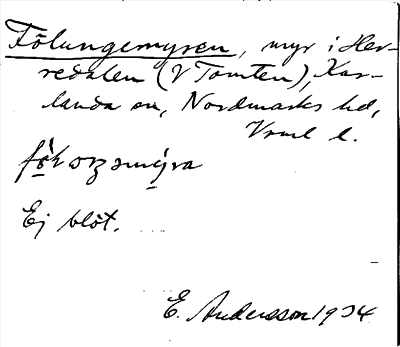 Fölungemyren, myr i Her-
redalen (V Tomten), Kar-
landa sn, Nordmarks hd,
Vrml l.
Ej blöt.
E. Andersson 1934